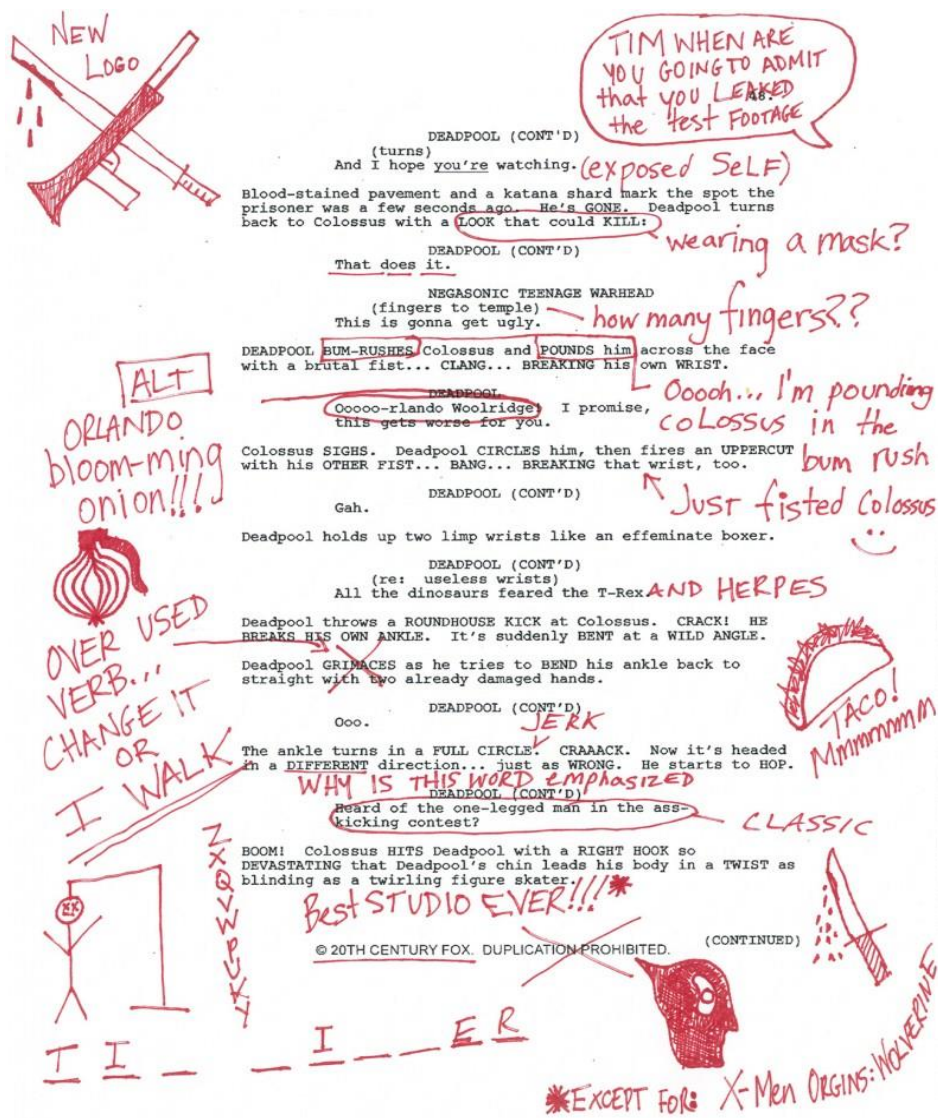 NEW
LOGO
TIM WHEN ARE
YOU GOING TO ADMIT
that you LEAKED
the test FOOTAGE
48.
DEADPOOL (CONT'D)
(turns)
And I hope you're watching. (exposed SELF)
Blood-stained pavement and a katana shard mark the spot the
prisoner was a few seconds ago. He's GONE. Deadpool turns
back to Colossus with a LOOK that could KILL:
wearing a mask?
DEADPOOL (CONT'D)
That does it.
NEGASONIC TEENAGE WARHEAD
(fingers to temple)
how many fingers??
This is gonna get ugly.
DEADPOOL BUM-RUSHES Colossus and POUNDS him across the face
with a brutal fist... CLANG... BREAKING his own WRIST.
Ooooh... I'm pounding
COLOSSUS in the
bum rush
ALT
ORLANDO
bloom-ming
onion!!!
DEADPOOL
Ooooo-rlando Woolridge! I promise,
this gets worse for you.
Colossus SIGHS. Deadpool CIRCLES him, then fires an UPPERCUT
with his OTHER FIST... BANG... BREAKING that wrist, too.
Just fisted Colossus
DEADPOOL (CONT'D)
Gah.
Deadpool holds up two limp wrists like an effeminate boxer.
DEADPOOL (CONT'D)
(re: useless wrists)
All the dinosaurs feared the T-Rex. AND HERPES
Deadpool throws a ROUNDHOUSE KICK at Colossus. CRACK! HE
BREAKS HIS OWN ANKLE. It's suddenly BENT at a WILD ANGLE.
OVER USED
VERB...
CHANGE IT
OR
I WALK
Deadpool GRIMACES as he tries to BEND his ankle back to
straight with two already damaged hands.
TACO!
Mmmmmmm
DEADPOOL (CONT'D)
Ooo.
JERK
The ankle turns in a FULL CIRCLE. CRAAACK. Now it's headed
in a DIFFERENT direction... just as WRONG. He starts to HOP.
WHY IS THIS WORD emphasized
DEADPOOL (CONT'D)
Heard of the one-legged man in the ass-
kicking contest?
CLASSIC
BOOM! Colossus HITS Deadpool with a RIGHT HOOK so
DEVASTATING that Deadpool's chin leads his body in a TWIST as
blinding as a twirling figure skater.
Best STUDIO EVER!!!*
(CONTINUED)
© 20TH CENTURY FOX. DUPLICATION PROHIBITED.
XX
T I _ _ _ I _ _ _ E R
*EXCEPT FOR: X-Men ORGINS: WOLVERINE